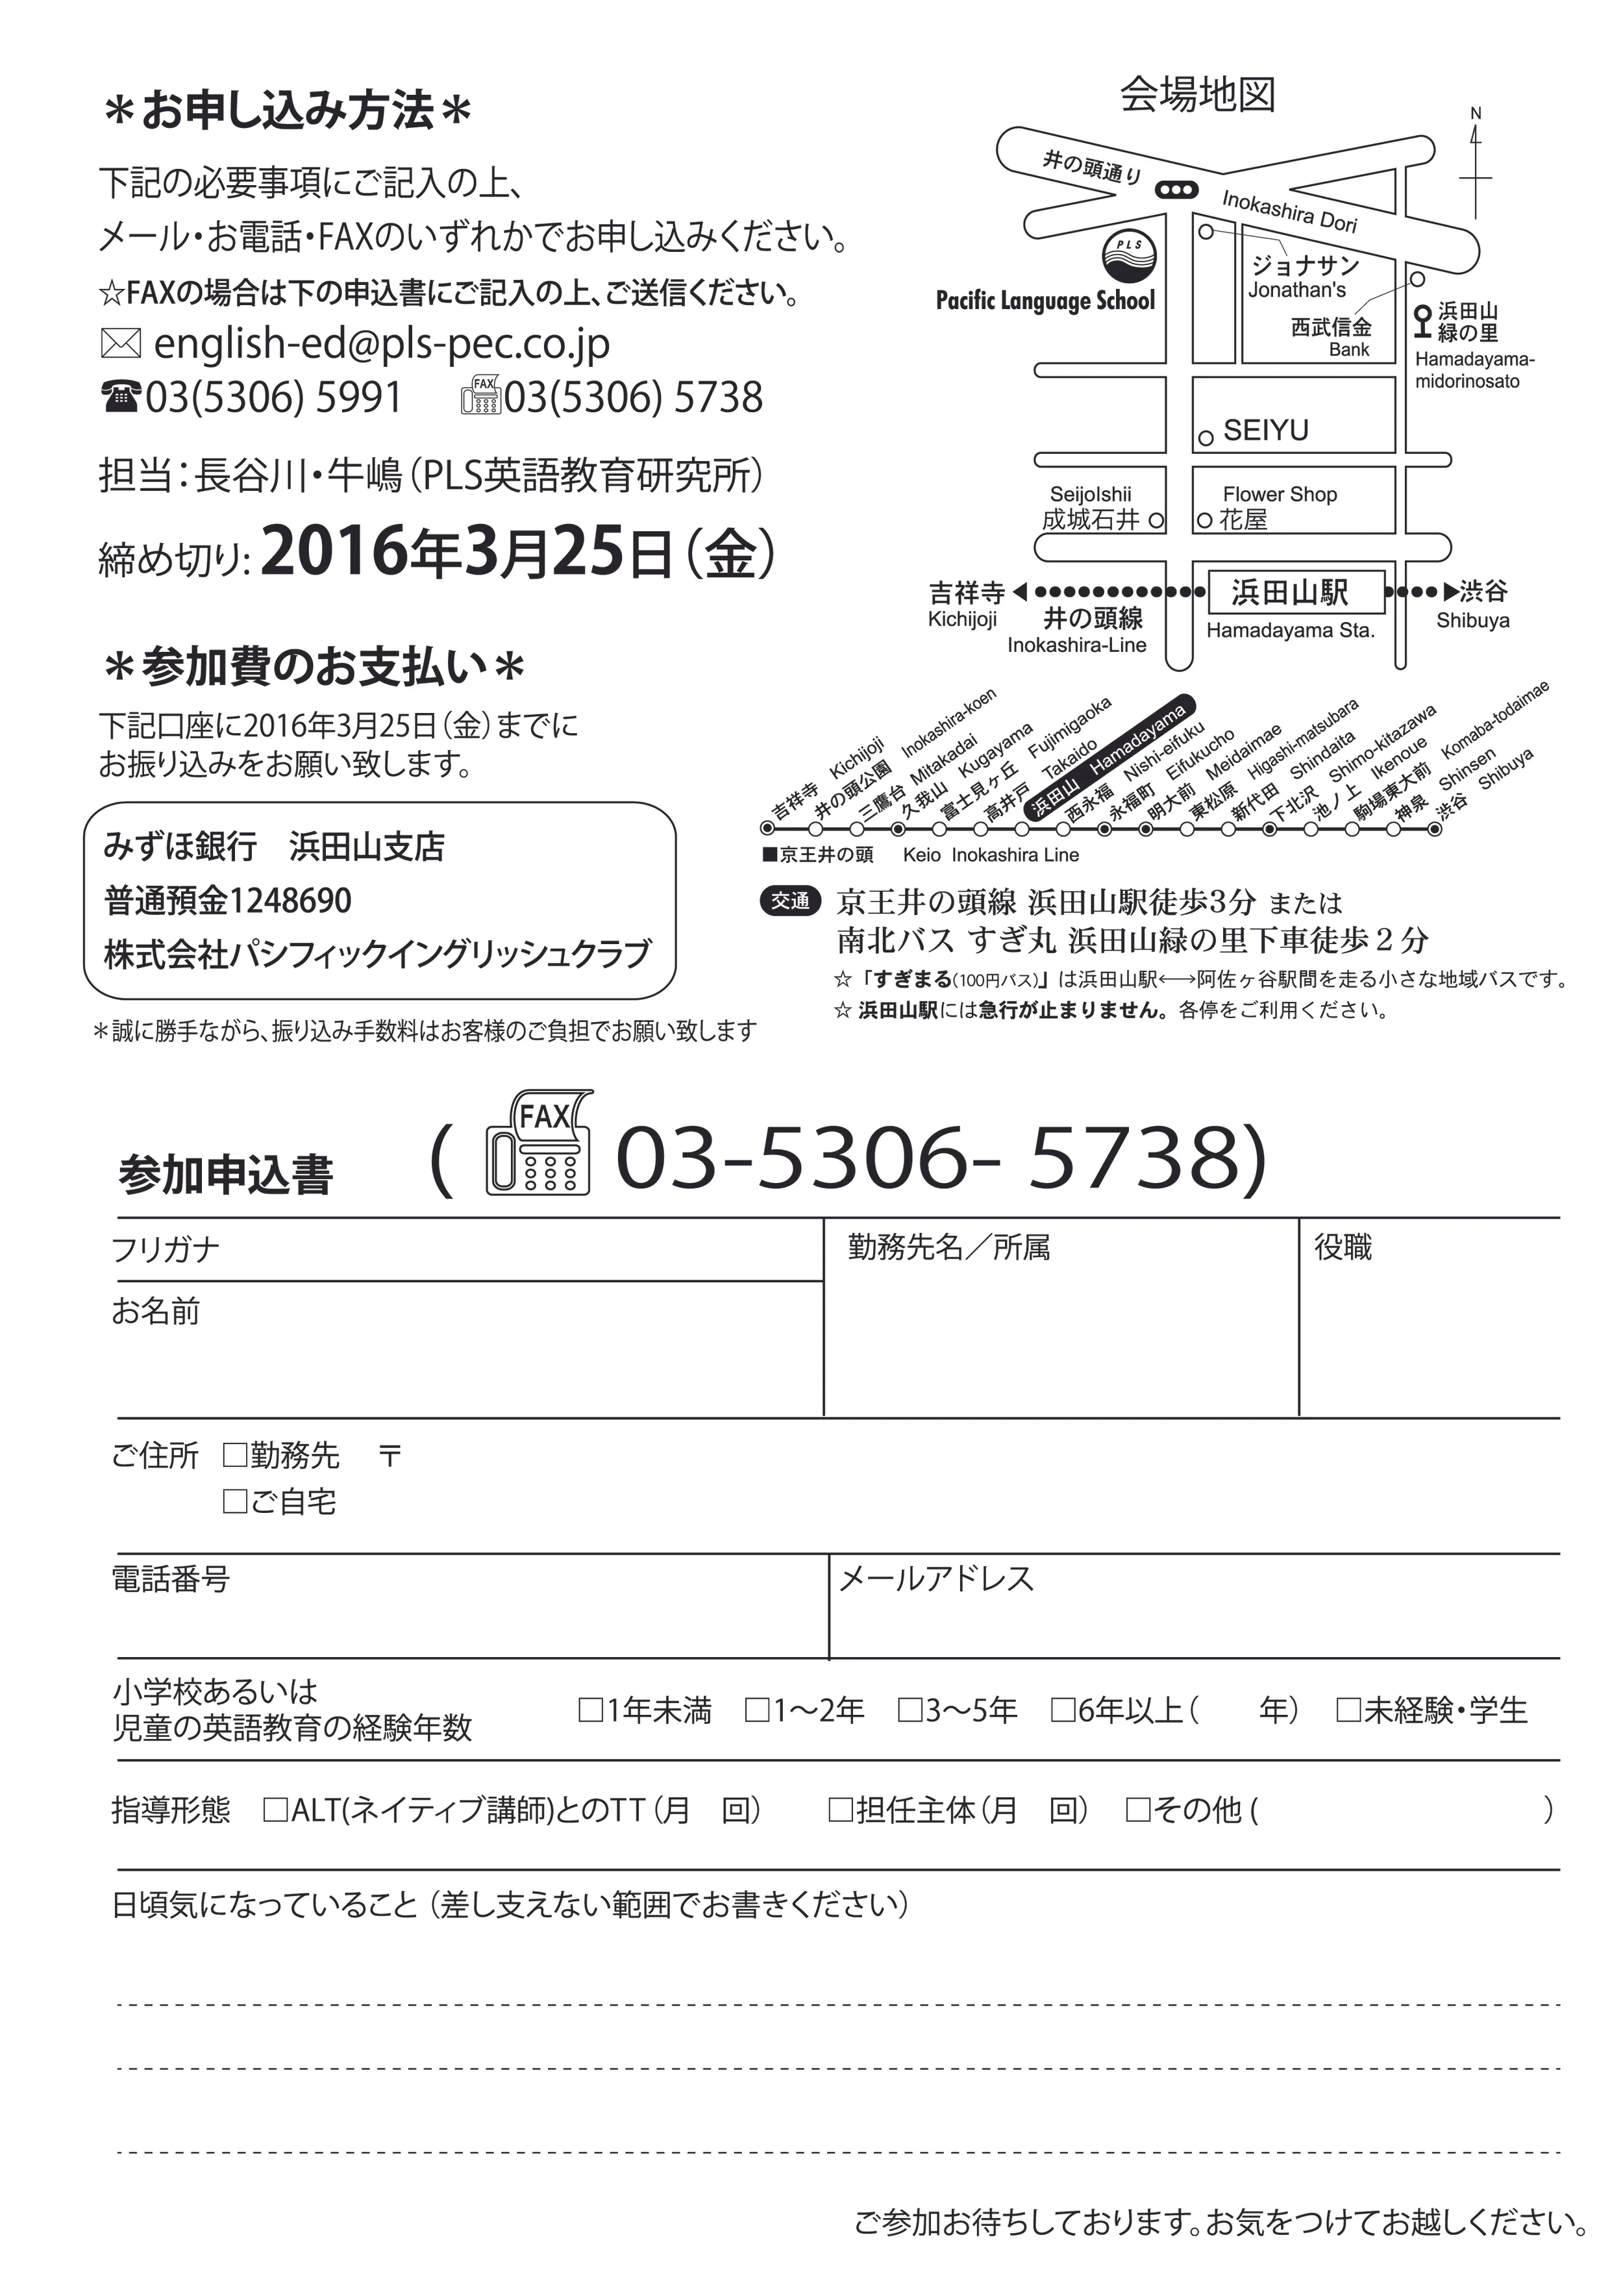 ＊お申し込み方法＊
下記の必要事項にご記入の上、
メール・お電話・FAXのいずれかでお申し込みください。
☆FAXの場合は下の申込書にご記入の上、ご送信ください。
english-ed@pls-pec.co.jp
☎03(5306) 5991 FAX 03(5306) 5738
担当：長谷川・牛嶋（PLS英語教育研究所）
締め切り: 2016年3月25日（金）
＊参加費のお支払い＊
下記口座に2016年3月25日（金）までに
お振り込みをお願い致します。
みずほ銀行　浜田山支店
普通預金1248690
株式会社パシフィックイングリッシュクラブ
＊誠に勝手ながら、振り込み手数料はお客様のご負担でお願い致します
会場地図
N
井の頭通り
Inokashira Dori
PLS
Pacific Language School
ジョナサン
Jonathan's
西武信金
Bank
浜田山
緑の里
Hamadayama-
midorinosato
SEIYU
SeijoIshii
成城石井
Flower Shop
花屋
吉祥寺
Kichijoji
井の頭線
Inokashira-Line
浜田山駅
Hamadayama Sta.
渋谷
Shibuya
吉祥寺 Kichijoji
井の頭公園 Inokashira-koen
三鷹台 Mitakadai
久我山 Kugayama
富士見ヶ丘 Fujimigaoka
高井戸 Takaido
浜田山 Hamadayama
西永福 Nishi-eifuku
永福町 Eifukucho
明大前 Meidaimae
東松原 Higashi-matsubara
新代田 Shindaita
下北沢 Shimo-kitazawa
池ノ上 Ikenoue
駒場東大前 Komaba-todaimae
神泉 Shinsen
渋谷 Shibuya
■京王井の頭 Keio Inokashira Line
交通 京王井の頭線 浜田山駅徒歩3分 または
南北バス すぎ丸 浜田山緑の里下車徒歩２分
☆「すぎまる(100円バス)」は浜田山駅⟷阿佐ヶ谷駅間を走る小さな地域バスです。
☆ 浜田山駅には急行が止まりません。各停をご利用ください。
参加申込書 ( FAX 03-5306- 5738)
フリガナ
お名前
勤務先名／所属
役職
ご住所 □勤務先 〒
□ご自宅
電話番号
メールアドレス
小学校あるいは
児童の英語教育の経験年数
□1年未満 □1～2年 □3～5年 □6年以上（　　年） □未経験・学生
指導形態 □ALT(ネイティブ講師)とのTT（月　回） □担任主体（月　回） □その他 (　　　　　　　　　）
日頃気になっていること（差し支えない範囲でお書きください）
ご参加お待ちしております。お気をつけてお越しください。